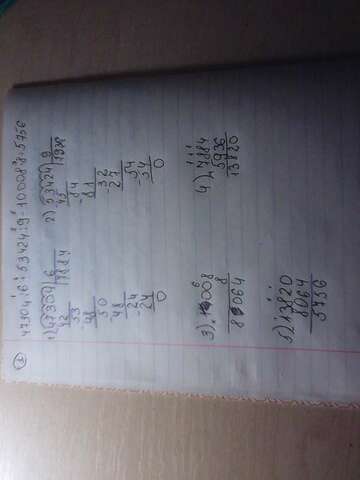 1
47304:6+53424:9-10008·8=5756
1) 47304 | 6
42 | 7884
53
-48
50
48
-24
24
0
2) 53424 | 9
45 | 5936
-84
81
-32
27
-54
54
0
3) 1008
8
8064
4) 7884
5936
13820
5) 13820
8064
5756